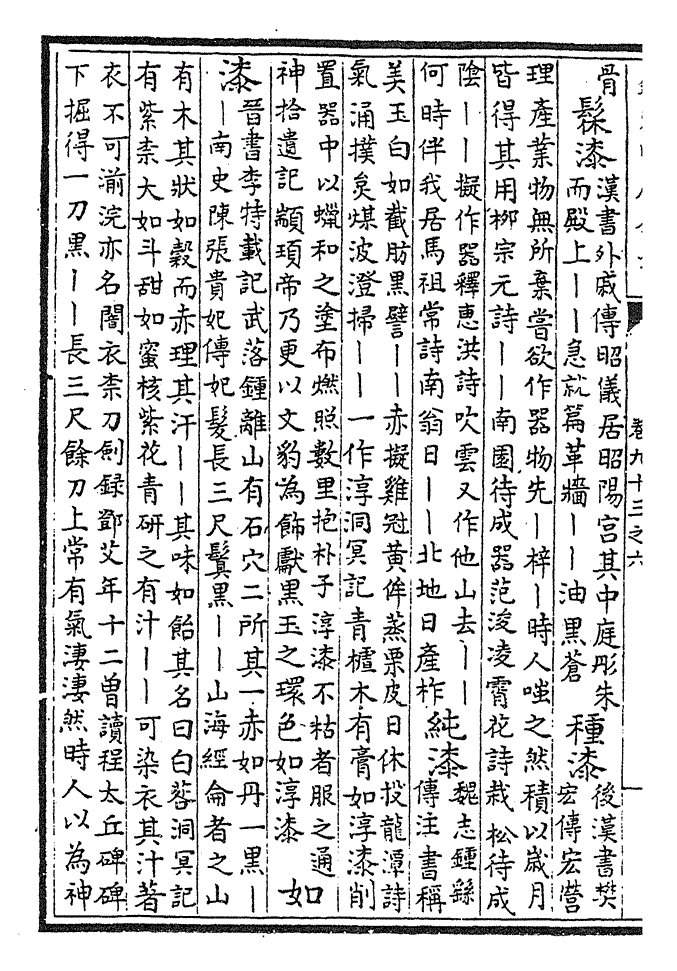 卷九十三之六
骨
髹漆
漢書外戚傳昭儀居昭陽宮其中庭彤朱
而殿上——急就篇革轖——油黑蒼
種漆
後漢書樊
宏傳宏營
理產業物無所棄嘗欲作器物先—梓—時人嗤之然積以歲月
皆得其用柳宗元詩——南園待成器范浚凌霄花詩栽松待成
陰——擬作器釋惠洪詩吹雲又作他山去——
何時伴我居馬祖常詩南翁日——北地日產柞
純漆
魏志鍾繇
傳注書稱
美玉白如截肪黑譬——赤擬雞冠黃侔蒸栗皮日休投龍潭詩
氣涌撲炱煤波澄掃——一作淳洞冥記青櫨木有膏如淳漆削
置器中以蠟和之塗布燃照數里抱朴子淳漆不枯者服之通
神拾遺記顓頊帝乃更以文豹為飾獻黑玉之環色如淳漆
如
漆
晉書李特載記武落鍾離山有石穴二所其一赤如丹一黑—
—南史陳張貴妃傳妃髮長三尺鬒黑——山海經侖者之山
有木其狀如穀而赤理其汗——其味如飴其名曰白䓘洞冥記
有紫柰大如斗甜如蜜核紫花青研之有汁——可染衣其汁著
衣不可湔浣亦名闇衣柰刀劍錄鄧艾年十二曾讀程太丘碑碑
下掘得一刀黑——長三尺餘刀上常有氣淒淒然時人以為神